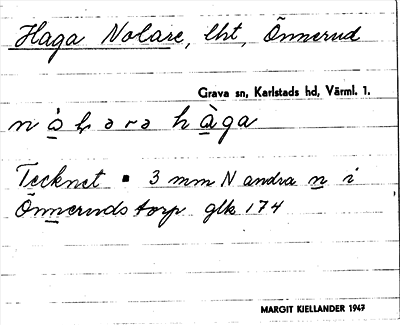 Haga Nolare, lht, Önnerud
Grava sn, Karlstads hd, Värml. 1.
hàga
Tecknet ▪ 3 mm N andra n i
Önneruds torp glk 174
MARGIT KIELLANDER 1947